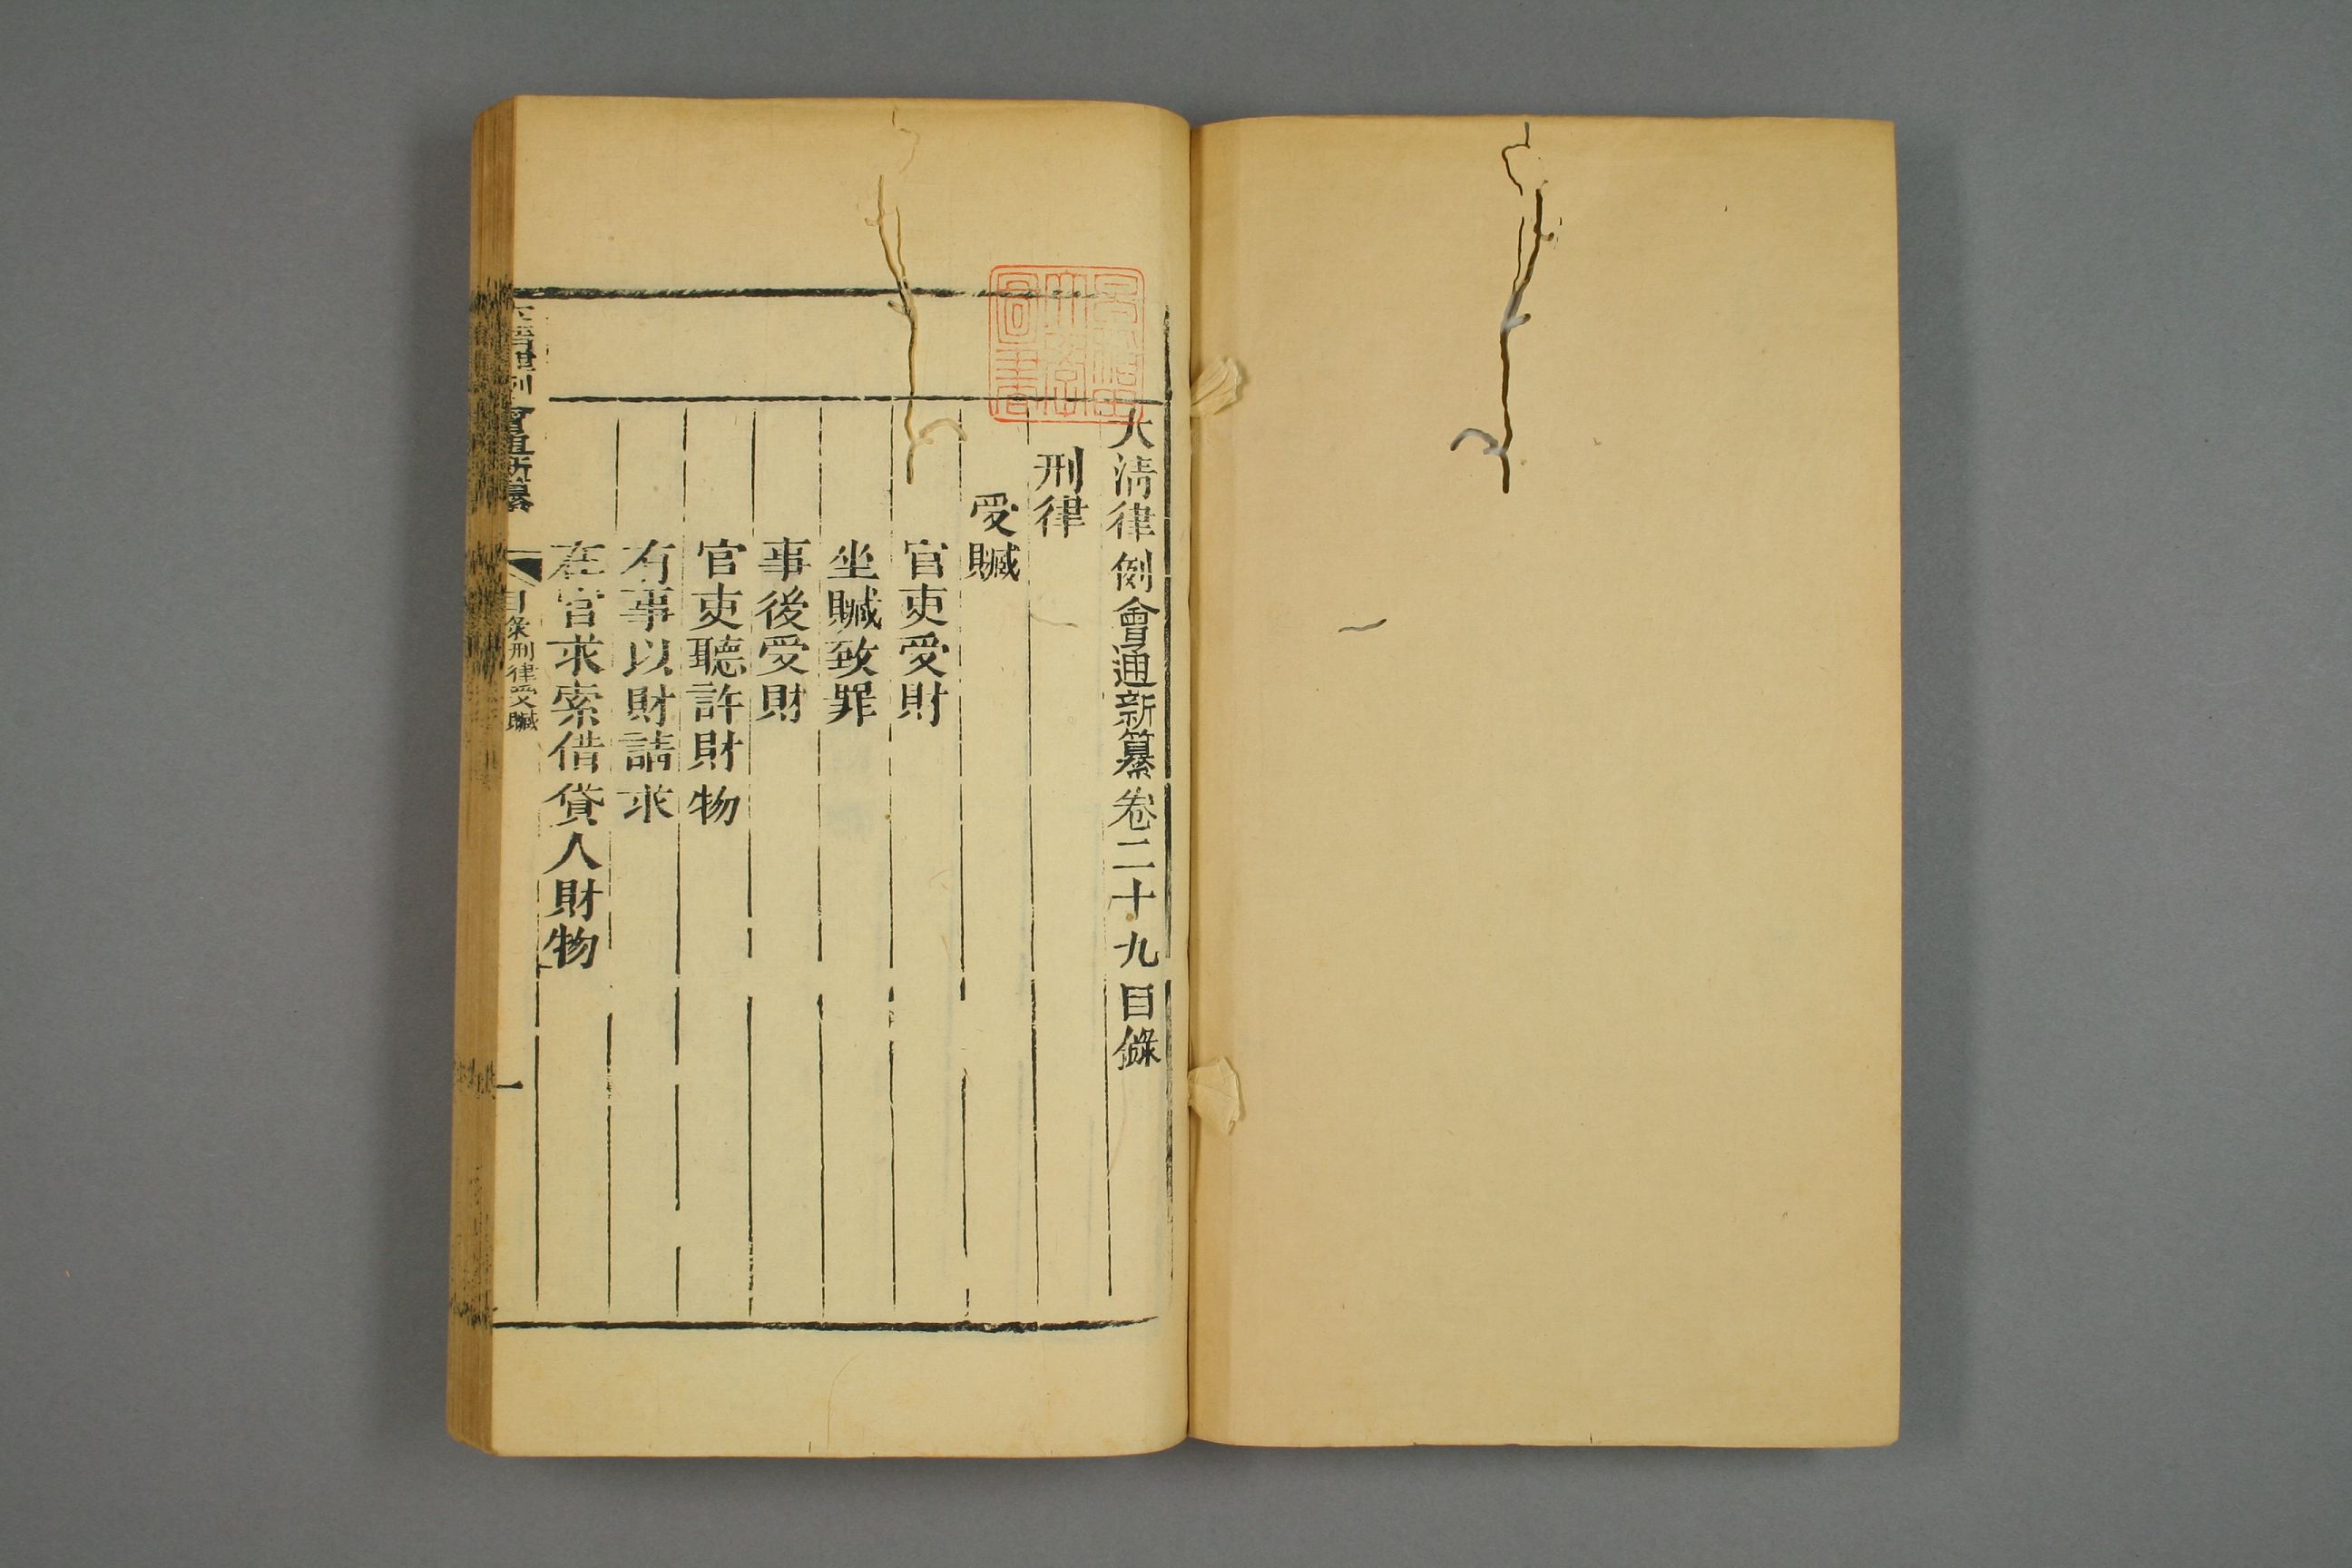 大清律例會通新纂卷二十九目錄
刑律
受贓
官吏受財
坐贓致罪
事後受財
官吏聽許財物
有事以財請求
在官求索借貸人財物
大清律例會通新纂
目錄刑律受贓
一